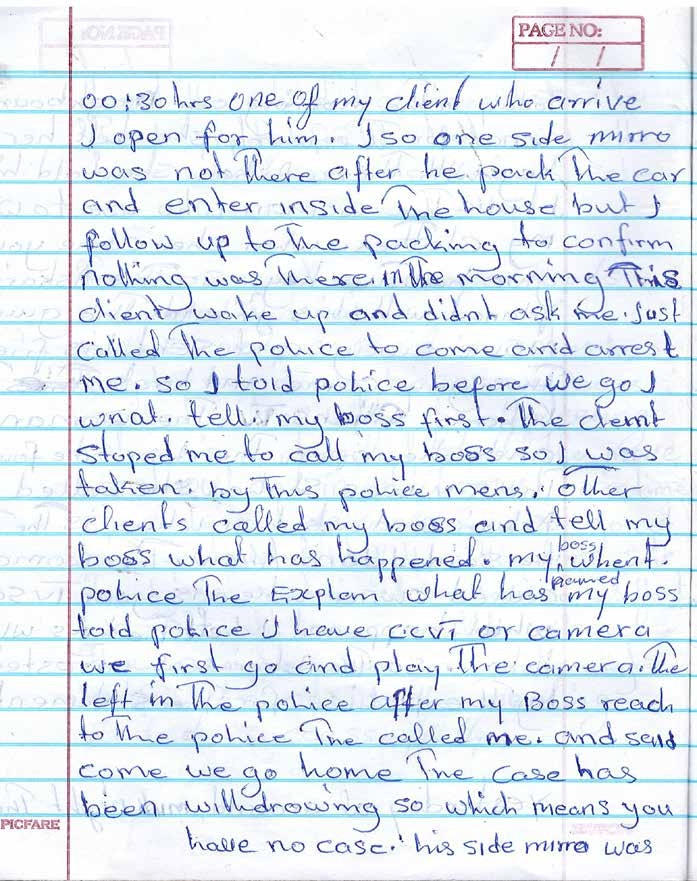 PAGE NO:
/ /
00:30hrs one of my client who arrive
I open for him. I so one side mirro
was not there after he pack the car
and enter inside the house but I
follow up to the packing to confirm
nothing was there. in the morning This
client wake up and didnt ask me. Just
called the police to come and arrest
me. so I told police before we go I
tell. my boss first. The client
stoped me to call my boss so I was
taken. by this police mens,. Other
clients called my boss and tell my
boss what has happened. my boss whent.
police The Explam what has my boss
told police I have ccvT or camera
we first go and play the camera. The
left in the police after my Boss reach
to the police The called me. and said
come we go home The case has
been withdrowing so which means you
have no case. his side mirro was
PICFARE